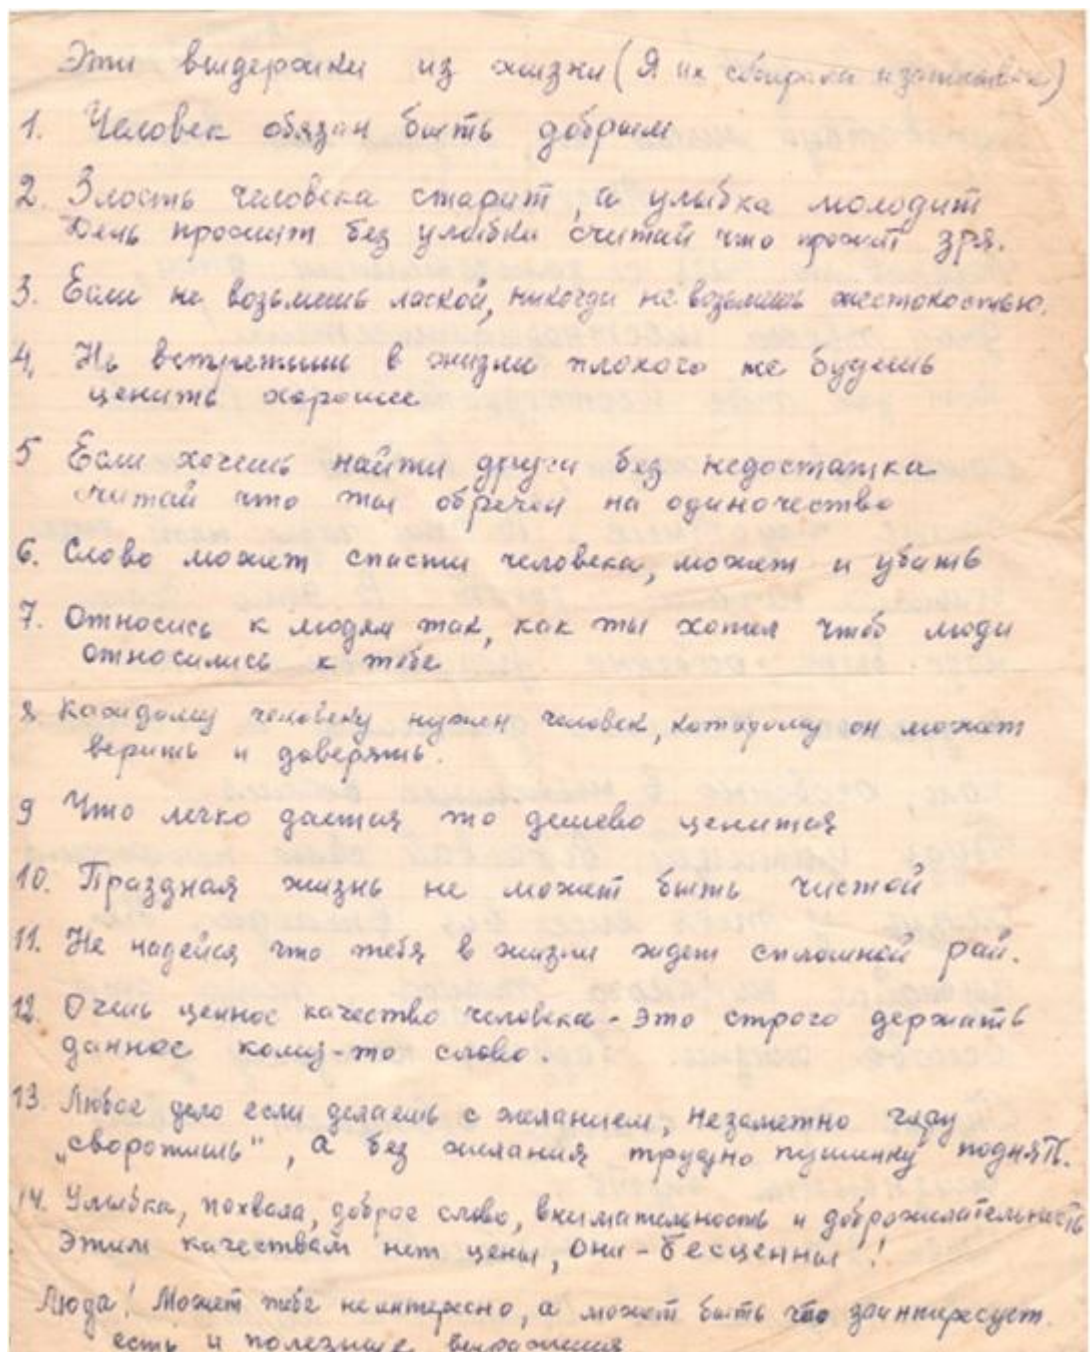 Эти выдержки из жизни (Я их собирала и записывала)
1. Человек обязан быть добрым
2. Злость человека старит, а улыбка молодит
День прожит без улыбки считай что прожит зря.
3. Если не возьмешь лаской, никогда не возьмешь жестокостью.
4. Не встретивши в жизни плохого не будешь
ценить хорошее
5 Если хочешь найти друга без недостатка
считай что ты обречен на одиночество
6. Слово может спасти человека, может и убить
7. Относись к людям так, как ты хотел чтбо люди
относились к тебе
8 Каждому человеку нужен человек, которому он может
верить и доверять.
9 Что легко дается то дешево ценится
10. Праздная жизнь не может быть чистой
11. Не надейся что тебя в жизни ждет сплошной рай.
12. Очень ценное качество человека - это строго держать
данное кому-то слово.
13. Любое дело если делаешь с желанием, незаметно гору
„своротишь", а без желания трудно пушинку поднят.
14. Улыбка, похвала, доброе слово, внимательность и доброжелательность
Этим качествам нет цены, они - бесценны!
Люда! Может тебе неинтересно, а может быть что заинтересует.
есть и полезные выражения